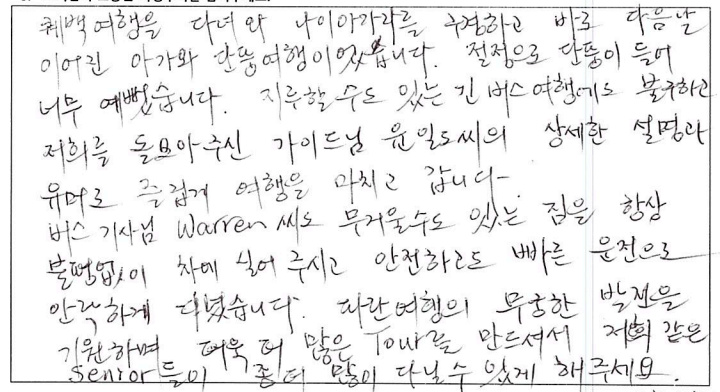 퀘백여행을 다녀와 나이아가라를 구경하고 바로 다음날
이어린 아가와 단풍여행이었습니다. 절정으로 단풍이 들어
너무 예뻤습니다. 지루할 수도 있는 긴 버스여행에도 불구하고
저희를 돌보아주신 가이드님 윤일도씨의 상세한 설명과
유머로 즐겁게 여행을 마치고 갑니다-
버스 기사님 Warren 씨도 무거울수도 있는 짐을 항상
불평없이 차에 실어 주시고 안전하고도 빠른 운전으로
안락하게 다녔습니다. 파란여행의 무궁한 발전을
기원하며 더욱 더 많은 Tour를 만드셔서 저희 같은
Senior들이 좀더 많이 다닐 수 있게 해주세요.